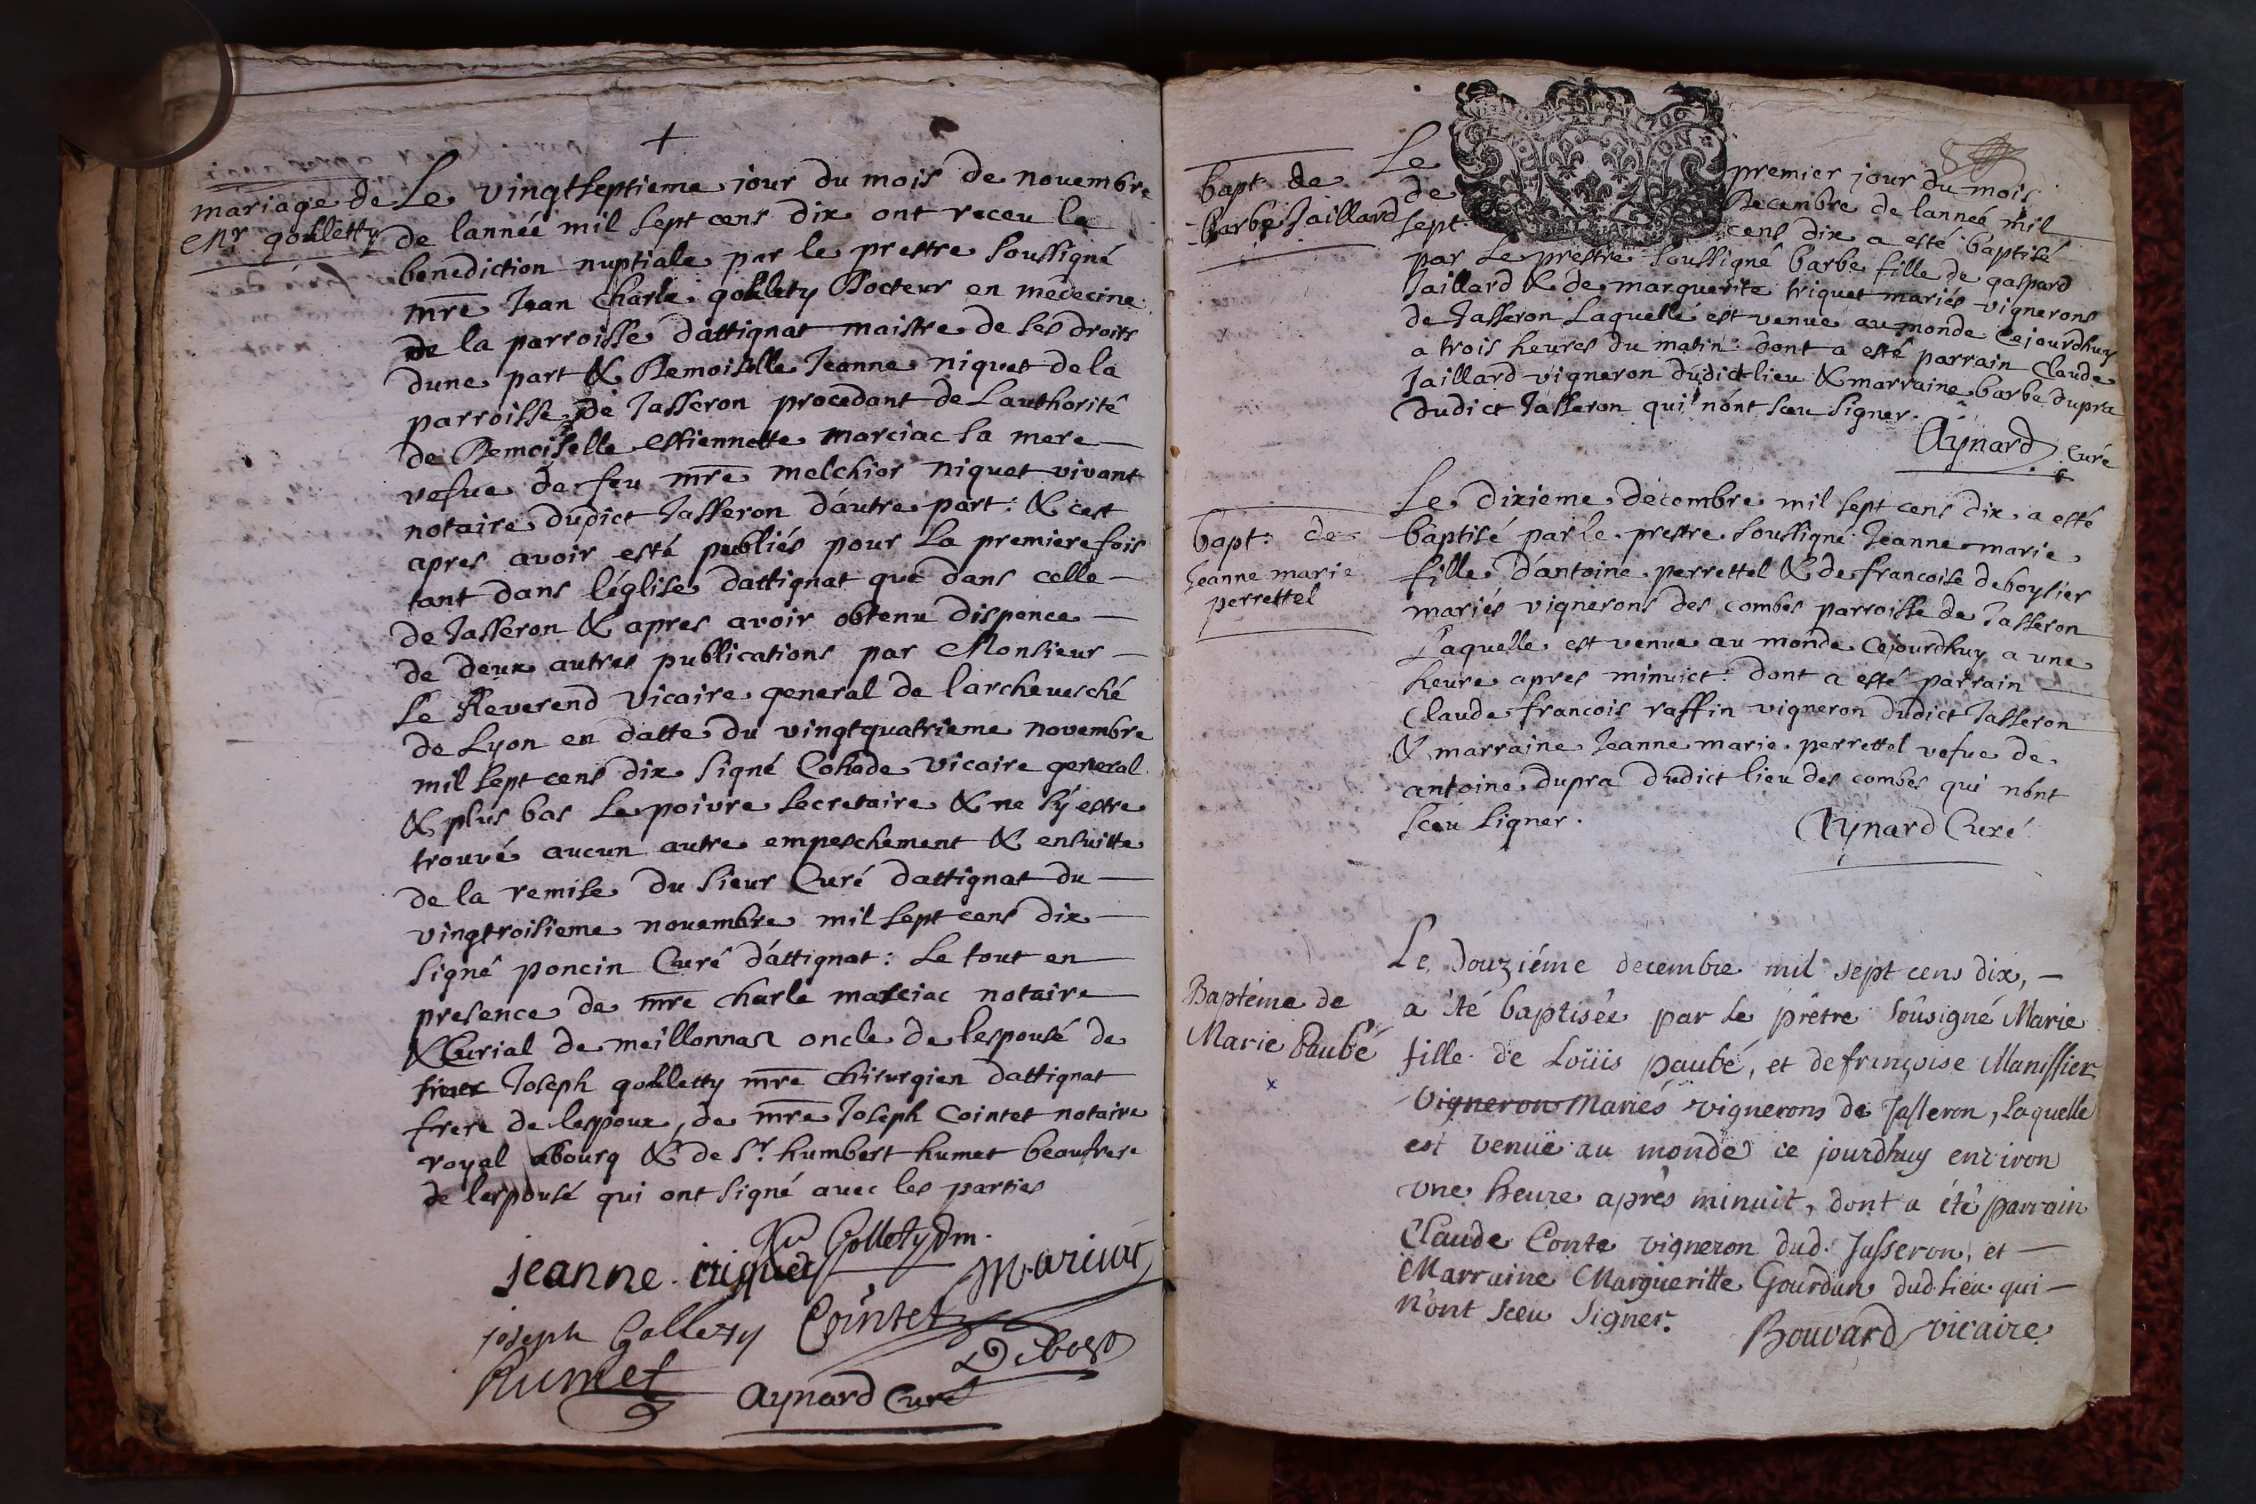 +
mariage de
Mr golletty
Le vingtseptieme jour du mois de novembre
de lannéé mil sept cens dix ont receu la
benediction nuptiale par le prestre soussigné
mre Jean Charle gollety Docteur en medecine
de la parroisse dattignat maistre de ses droits
dune part & Demoiselle Jeanne niquet de la
parroisse de Jasseron procedant de Lauthorité
de Demoiselle estiennette marciac sa mere
vefue de feu mre melchior niquet vivant
notaire dudict Jasseron dautre part: & cest
apres avoir esté publiés pour la premiere fois
tant dans léglise dattignat que dans celle
de Jasseron & apres avoir obtenu dispence
de deux autres publications par Monsieur
Le Reverend vicaire general de larcheuesché
de Lyon en datte du vingtquatrieme novembre
mil sept cens dix signé Cohade vicaire general
& plus bas Lepoivre secretaire & ne sy estre
trouvé aucun autre empeschement & ensuitte
de la remise du sieur Curé dattignat du
vingtroisieme nouembre mil sept cens dix
signé poncin Curé dattignat: Le tout en
presence de mre charle marciac notaire
& Curial de meillonnaz oncle de lespousé de
Joseph golletty mre chirurgien dattignat
frere de lespoux, de mre Joseph Cointet notaire
royal abourg & de Sr. humbert humet beaufrere
de lespousé qui ont signé avec les parties
Golletydm.
jeanne niquet
Marciac
joseph Gollety
Cointet
Humet
Debost
Aynard Curé
bapt. de
Barbe Jaillard
Le premier jour du mois
de Decembre de lanneé mil
sept cens dix a esté baptisé
par Le prestre soussigné barbe fille de gaspard
Jaillard & de marguerite triquet mariés vignerons
de Jasseron Laquelle est venue au monde Cejourdhuy
a trois heures du matin: dont a esté parrain Claude
Jaillard vigneron dudict lieu & marraine barbe dupra
dudict Jasseron qui nont sceu signer.
Aynard Curé
bapt: de
Jeanne marie
perrettel
Le dixieme decembre mil sept cens dix a esté
baptisé par le prestre soussigné Jeanne marie
fille dantoine perrettel & de francoise deboysier
mariés vignerons des combes parroisse de Jasseron
Laquelle est venue au monde Cejourdhuy a une
heure apres minuict: dont a esté parrain
Claude francois raffin vigneron dudict Jasseron
& marraine Jeanne marie perrettel vefue de
antoine dupra dudict lieu des combes qui nont
sceu signer.
Aynard Curé
Baptéme de
Marie Paubé
x
Le, douziéme decembre mil sept cens dix,
a été baptiseé par le prêtre soûsigné Marie
fille de Loüis paubé, et de françoise Manissier
vigneron Mariés vignerons de Jasseron, Laquelle
est venuë au monde ce jourdhuy environ
une heure aprés minuit, dont a été parrain
Claude Conte vigneron dud. Jasseron, et
Marraine Margueritte Gourdan dud. lieu qui
n'ont sceu signer.
Bouvard vicaire